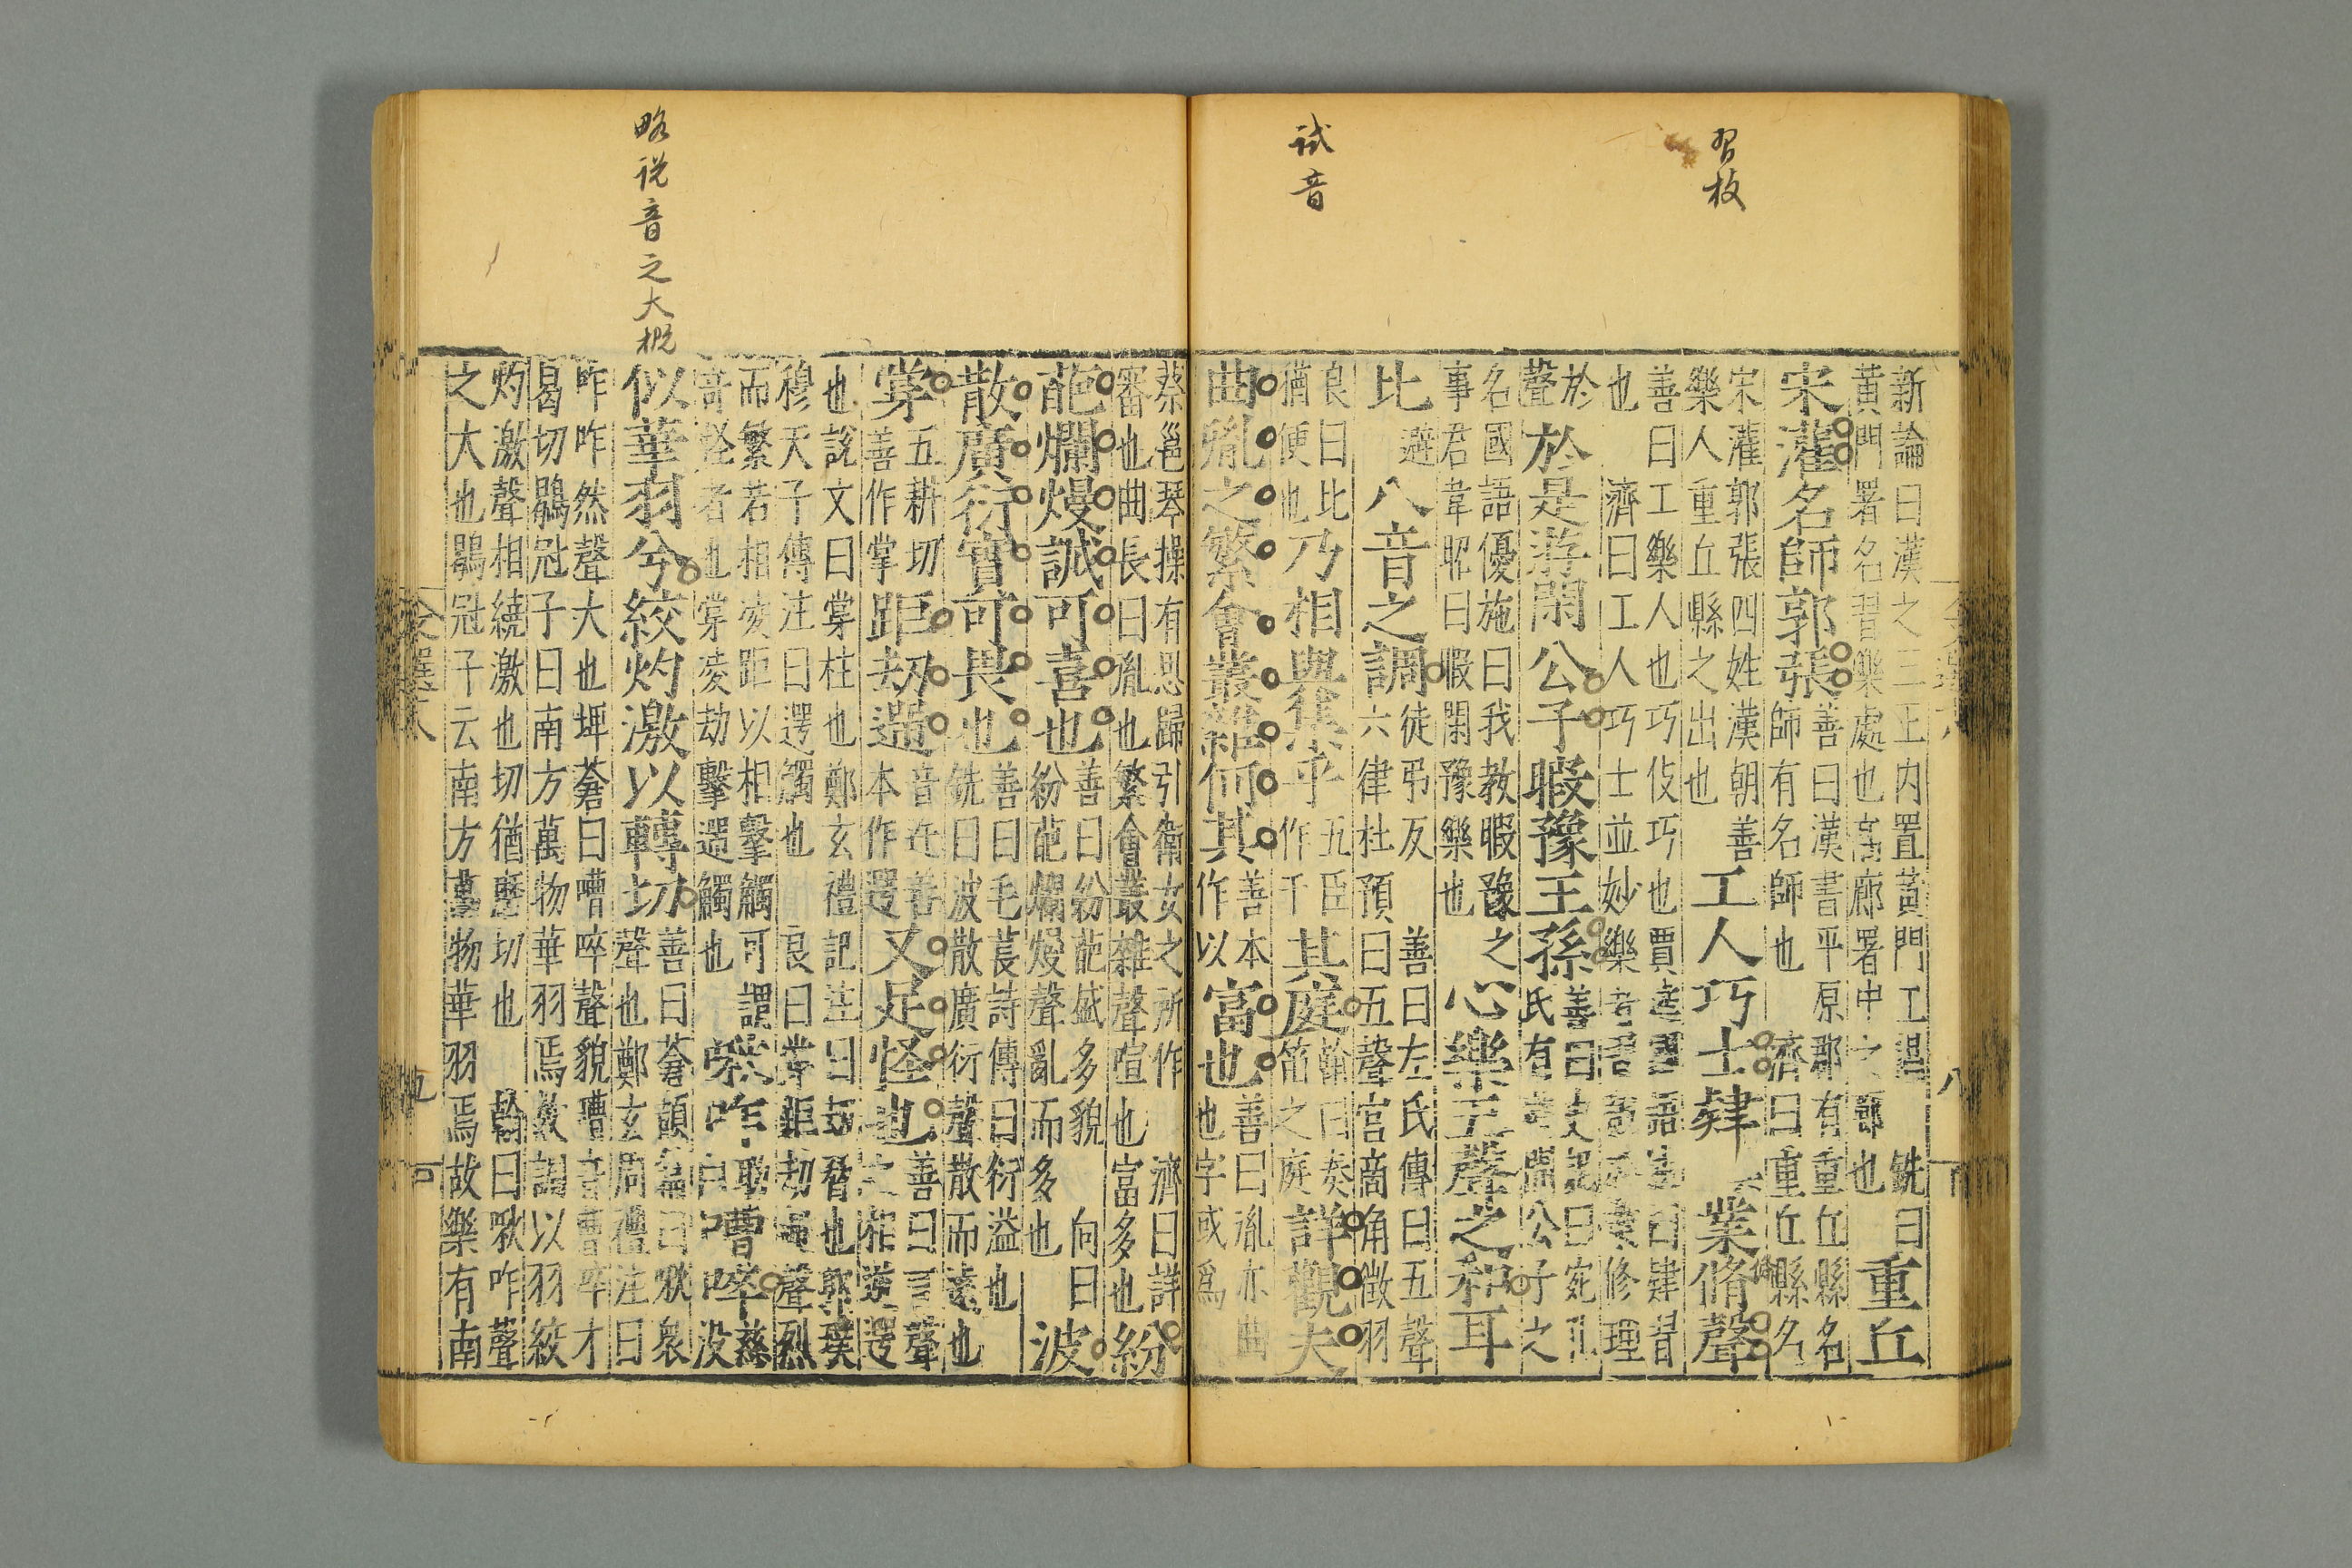 習枚
試音
新論曰漢之三主内置黄門工倡
黄門署名習樂處也高廊署中之郎也
銑曰
重丘
宋灌名師郭張
善曰漢書平原郡有重丘縣名
師有名師也濟曰重丘縣名
宋灌郭張四姓漢朝善
樂人重丘縣之出也
工人巧士肄業脩聲
善曰工樂人也巧伎巧也賈逵國語注曰肄習
也濟曰工人巧士並妙樂音
修理
於聲
於是游閑公子暇豫王孫
善曰史記曰宛孔
氏有游閑公子之
名國語優施曰我教暇豫之
事君韋昭曰暇閑豫樂也
心樂五聲之和耳
比
避
八音之調
徒弔反善曰左氏傳曰五聲
六律杜預曰五聲宫商角徵羽
良曰比
猶便也
乃相與集乎
五臣
作于
其庭
翰曰奏
笛之庭
詳觀夫
曲胤之繁會叢雜何其
善本
作以
富也
善曰胤亦曲
也字或爲
略说音之大概
蔡邕琴操有思歸引衛女之所作濟曰詳
審也曲長曰胤也繁會叢雜聲喧也富多也
紛
葩爛熳誠可喜也
善曰紛葩盛多貌向曰
紛葩爛熳聲亂而多也
波
散廣衍實可畏也
善曰毛萇詩傳曰衍溢也
銑曰波散廣衍聲散而遠也
掌
五耕切
善作掌
距劫遌
音迕善
本作遻
又足怪也
善曰言聲
之
也說文曰掌柱也鄭玄禮記注曰劫脅也郭璞
穆天子傳注曰遻觸也良曰掌距劫遌聲烈
而繁若相凌距以相擊觸可謂
奇怪者也掌凌劫擊遌觸也
啾咋嘈啐
慈没
似華羽兮絞灼激以轉切
善曰蒼頡篇曰啾衆
聲也鄭玄周禮注曰
咋咋然聲大也埤蒼曰嘈啐聲貌嘈音曹啐才
曷切鶡冠子曰南方萬物華羽焉故調以羽絞
灼激聲相繞激也切猶磨切也翰曰啾咋聲
之大也鶡冠子云南方萬物華羽焉故樂有南